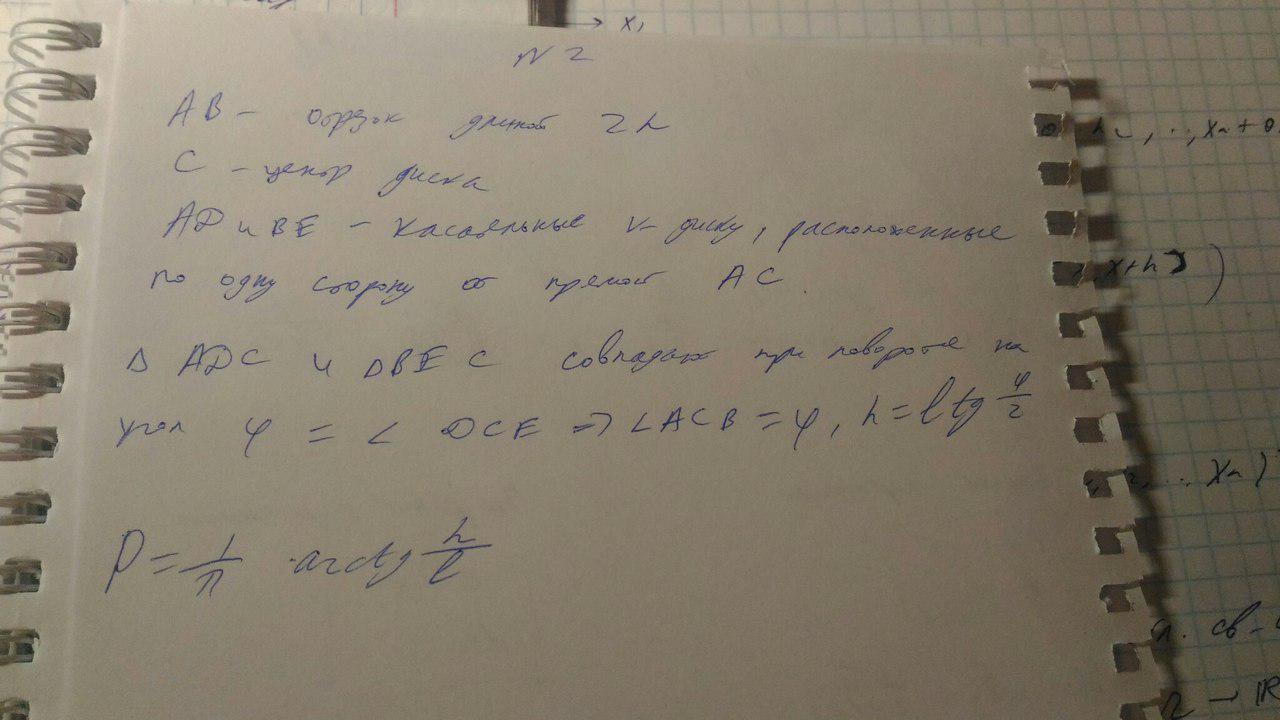 x₁
N 2
AB – отрезок длиной 2h
C – центр диска
AD и BE – касательные к диску, расположенные
по одну сторону от прямой AC.
Δ ADC и ΔBEC совпадают при повороте на
угол φ = ∠ DCE => ∠ACB = φ, h = l tg φ/2
P = 1/π · arctg h/l
x+h